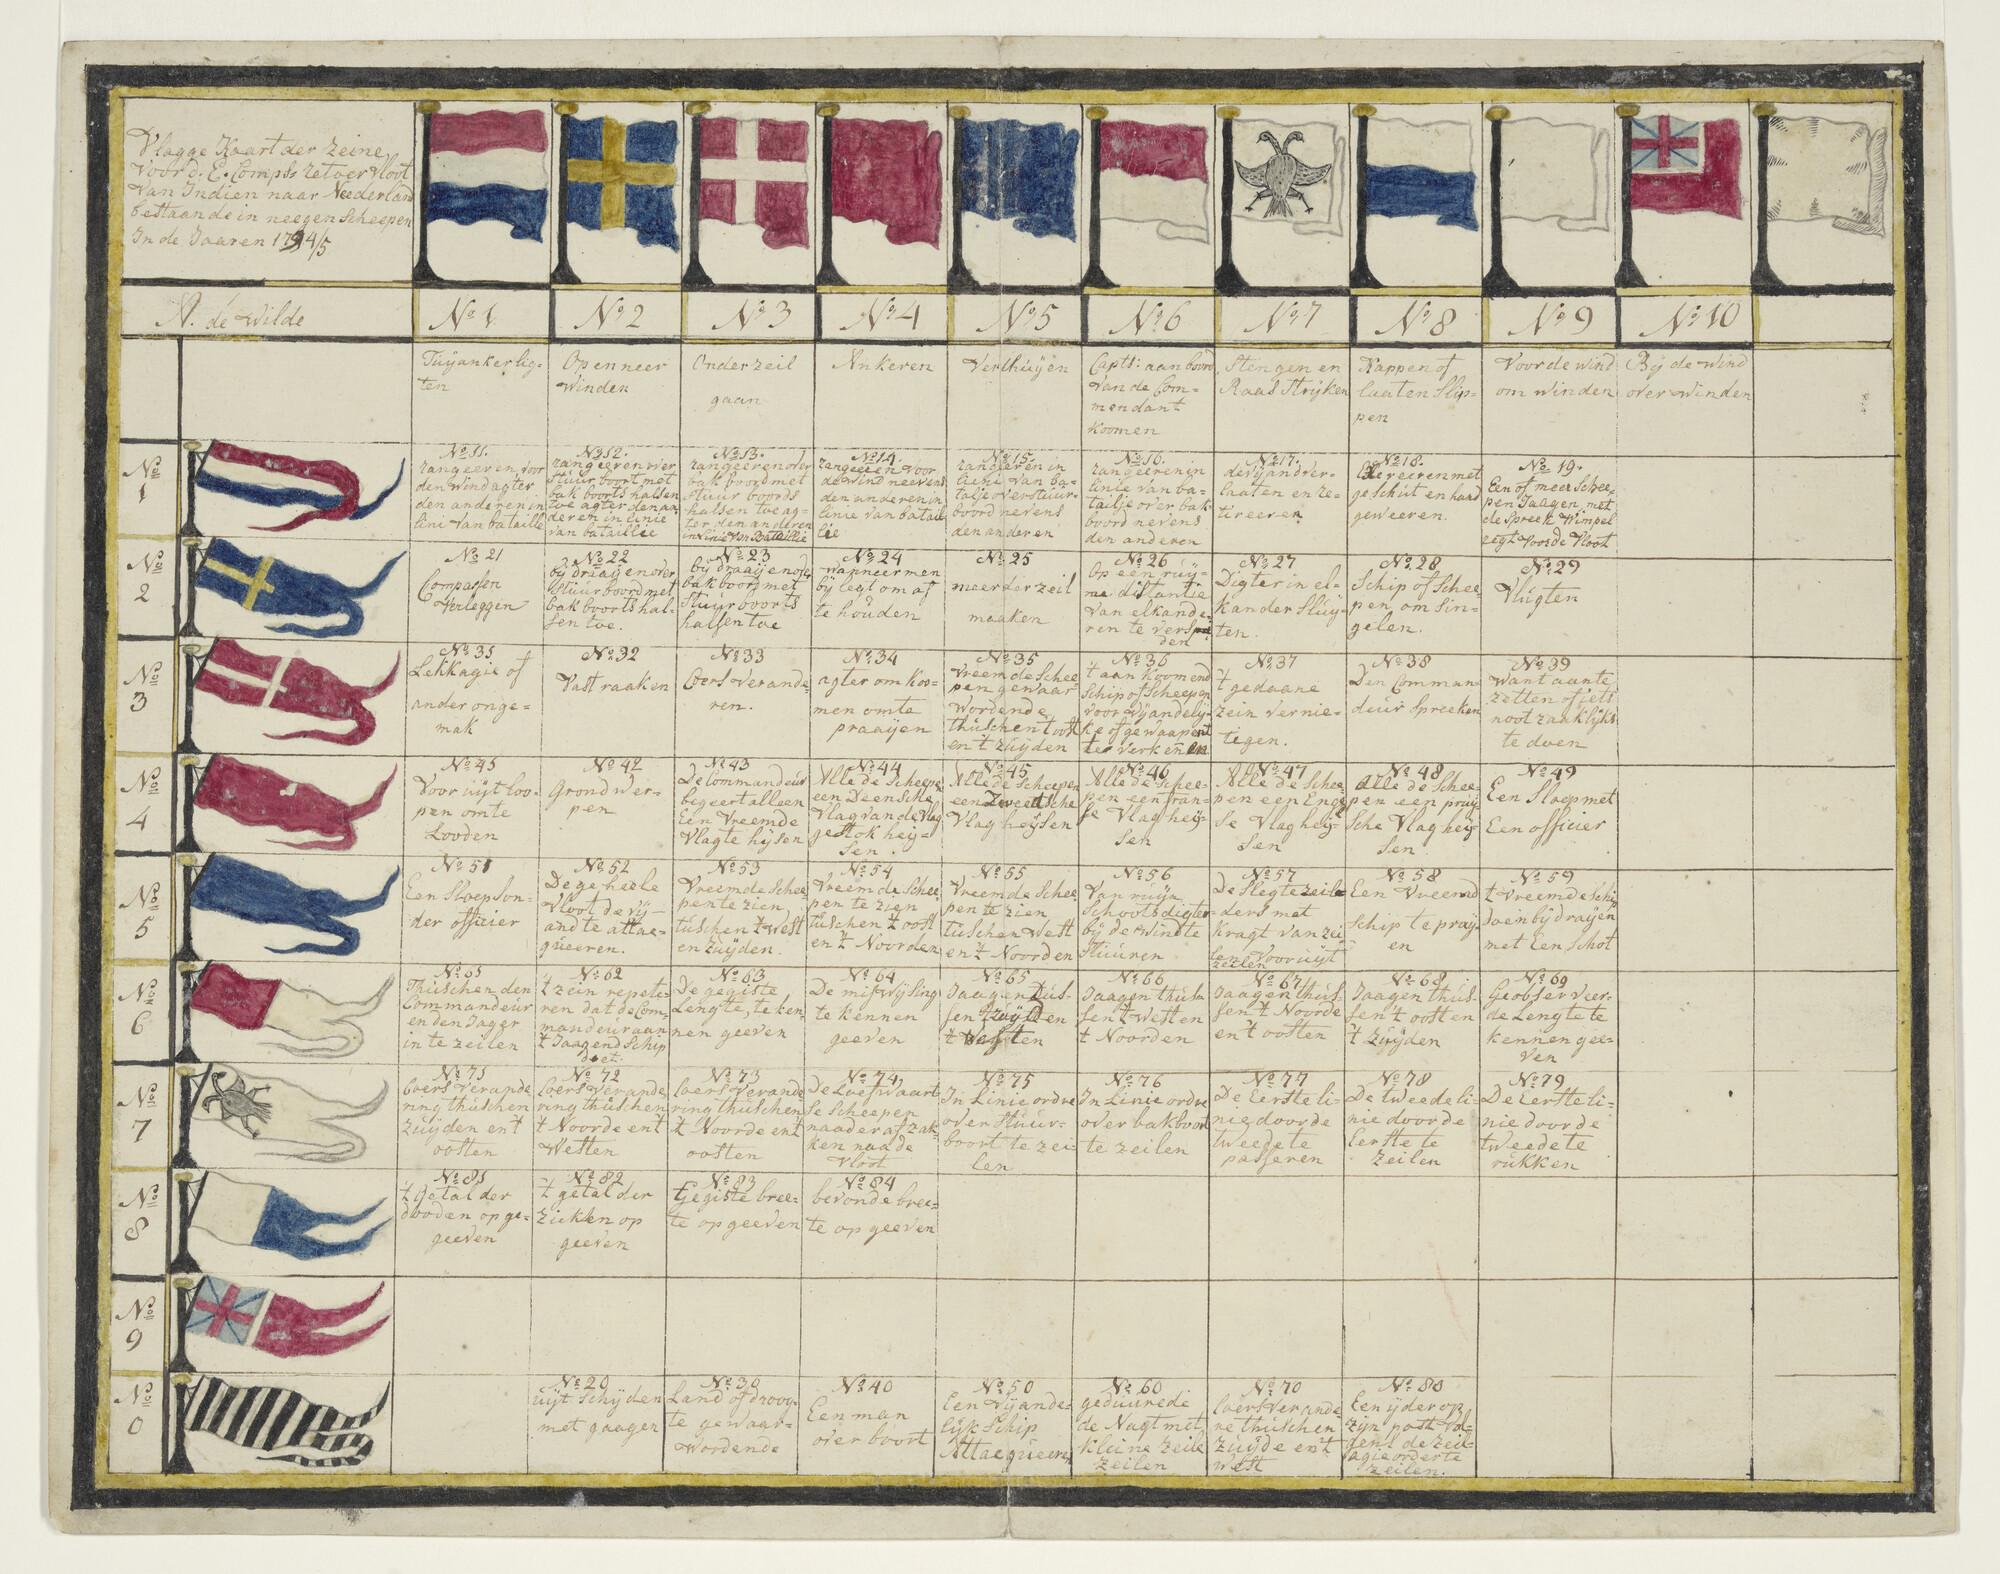 Vlagge Kaart der Zeine
Voor d. E. Comps. retoer Vloot
Van Indien naar Neederland
bestaande in neegen Scheepen
In de Jaaren 1794/5
N. de Wilde
No 1
No 2
No 3
No 4
No 5
No 6
No 7
No 8
No 9
No 10
Tuÿankerlig=
ten
Op en neer
winden
Onder zeil
gaan
Ankeren
Verthuÿen
Captt: aan boord
van de Com=
mendant
koomen
Stengen en
Raas Strÿken
Kappen of
laaten Slip=
pen
Voor de wind
om winden
Bÿ de wind
over winden
No 1
No 11.
rangeeren voor
den wind agter
den anderen in
lini van bataille
No 12.
rangeeren over
Stuur boort met
bak boorts halsen
toe agter den an
deren in linie
van bataillie
No 13.
rangeeren over
bak boord met
Stuur boords
halsen toe ag=
ter den anderen
in linie van Bataillie
No 14.
rangeeren voor
de wind neevens
den anderen in
linie van batail
lie
No 15.
rangeeren in
linie van ba=
talje over stuur=
boord nevens
den anderen
No 16.
rangeeren in
linie van ba=
tailje over bak
boord nevens
den anderen
No 17.
de vÿand ver=
laaten en re=
tireeren
No 18.
eeren met
geschut en hand
geweeren.
No 19.
Een of meer Schee=
pen Jaagen met
de Spreek Wimpel
regt voor de Vloot
No 2
No 21
Compassen
Verleggen
No 22
bÿ draaÿen over
Stuurboord met
bak boorts hal=
sen toe.
No 23
bÿ draaÿen over
bak boord met
Stuur boorts
halsen toe
No 24
wanneer men
bÿ legt om af
te houden
No 25
meerder zeil
maaken
No 26
Op een ruÿ=
me distantie
van elkande=
ren te versprei
den
No 27
Digter in el=
kander Sluÿ=
ten.
No 28
Schip of Schee=
pen om Sin=
gelen.
No 29
Vlugten
No 3
No 31
Lekkagie of
ander onge=
mak
No 32
Vast raaken
No 33
Coers verande=
ren.
No 34
agter om koo=
men om te
praaÿen
No 35
Vreemde Schee
pen gewaar
wordende
thuschen t oost
en 't zuÿden
No 36
't aan koomend
Schip of Scheepen
voor vÿandelÿ=
ke of gewaapent
te verkennen
No 37
't gedaane
zein vernie=
tegen.
No 38
Den Comman=
deur Spreeken
No 39
Want aan te
zetten of iets
noot zaaklÿks
te doen
No 4
No 41
Voor uijt loo=
pen om te
Looden
No 42
Grond wer=
pen
No 43
De Commandeur
begeert alleen
Een Vreemde
Vlag te hÿsen
No 44
Alle de Scheepen
een Deensche
Vlag van de Vlag
gestok heÿ=
sen.
No 45
Alle de Scheepen
een Zweetsche
Vlag heÿsen
No 46
Alle de Schee=
pen een fran=
se Vlag heÿ=
sen
No 47
Alle de Schee
pen een Enge
se Vlag heÿ=
sen
No 48
Alle de Schee=
pen een pruÿ
sche Vlag heÿ=
sen
No 49
Een Sloep met
Een officier
No 5
No 51
Een Sloep son=
der officier
No 52
De geheele
Vloot de vÿ=
and te attac=
queeren.
No 53
Vreemde Schee
pen te zien
tuschen 't West
en zuÿden.
No 54
Vreemde Schee
pen te zien
tuschen 't oost
en 't Noorden
No 55
Vreemde Schee
pen te zien
tuschen West
en 't Noorden
No 56
Van ruÿm
Schoots digter
bÿ de wind te
Stuuren
No 57
De Slegte zeile
ders met
kragt van zei
len vooruÿt
zeilen
No 58
Een Vreemd
Schip te praÿ=
en
No 59
't Vreemde Schip
doen bÿ draÿen
met Een Schot
No 6
No 61
Thuschen den
Commandeur
en den Jager
in te zeilen
No 62
't zein repete=
ren dat de Com=
mandeur aan
't Jaagend Schip
doet.
No 63
De gegiste
Lengte, te ken=
nen geeven
No 64
De miswÿsing
te kennen
geeven
No 65
Jaagen Tus=
sen t zuÿden
't Westen
No 66
Jaagen thus=
sen t Westen
't Noorden
No 67
Jaagen thus=
sen t Noorde
en t oosten
No 68
Jaagen thus=
sen 't oosten
't zuÿden
No 69
Geobserveer=
de Lengte te
kennen gee=
ven
No 7
No 71
Coers verande
ring thuschen
zuÿden en t
oosten
No 72
Coers verande
ring thuschen
t Noorde en t
Westen
No 73
Coers verande
ring thuschen
t Noorde en t
oosten
No 74
De Loefwaart
se Scheepen
naader af zak=
ken na de
Vloot
No 75
In Linie ordre
over Stuur=
boort te zei=
len
No 76
In Linie ordre
over bakboort
te zeilen
No 77
De Eerste li=
nie door de
tweede te
passeren
No 78
De tweede li=
nie door de
Eerste te
zeilen
No 79
De Eerste li=
nie door de
tweede te
rukken
No 8
No 81
't getal der
dooden op ge=
geeven
No 82
't getal der
zieken op
geeven
No 83
Gegiste bree=
te op geeven
No 84
bevonde bree=
te op geeven
No 9
No 0
No 20
uijt Schÿden
met jaagen
No 30
Land of droog=
te gewaar=
wordende
No 40
Een man
over boort
No 50
Een Vÿande=
lÿk Schip
Attacqueeren
No 60
geduurede
de Nagt met
kleine zeile
zeilen
No 70
Coers verande
ne thuschen
zuÿde en 't
west
No 80
Een ÿder op
zÿn post vol=
gens de zeil=
agie order te
zeilen.